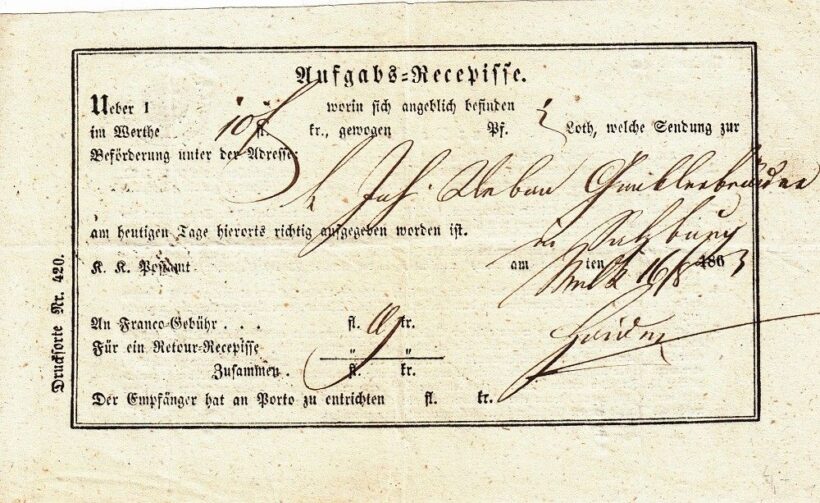 Aufgabs-Recepisse.
Ueber 1 worin sich angeblich befinden
im Werthe 10 fl. kr., gewogen Pf. Loth, welche Sendung zur
Beförderung unter der Adresse:
Joh. Urban
am heutigen Tage hierorts richtig aufgegeben worden ist.
in Salzburg
K. K. Postamt am ten 1863
Melk 16/8
An Franco-Gebühr . . . fl. kr.
Für ein Retour-Recepisse " "
Zusammen . fl. kr.
Der Empfänger hat an Porto zu entrichten fl. kr.
Drucksorte Nr. 420.